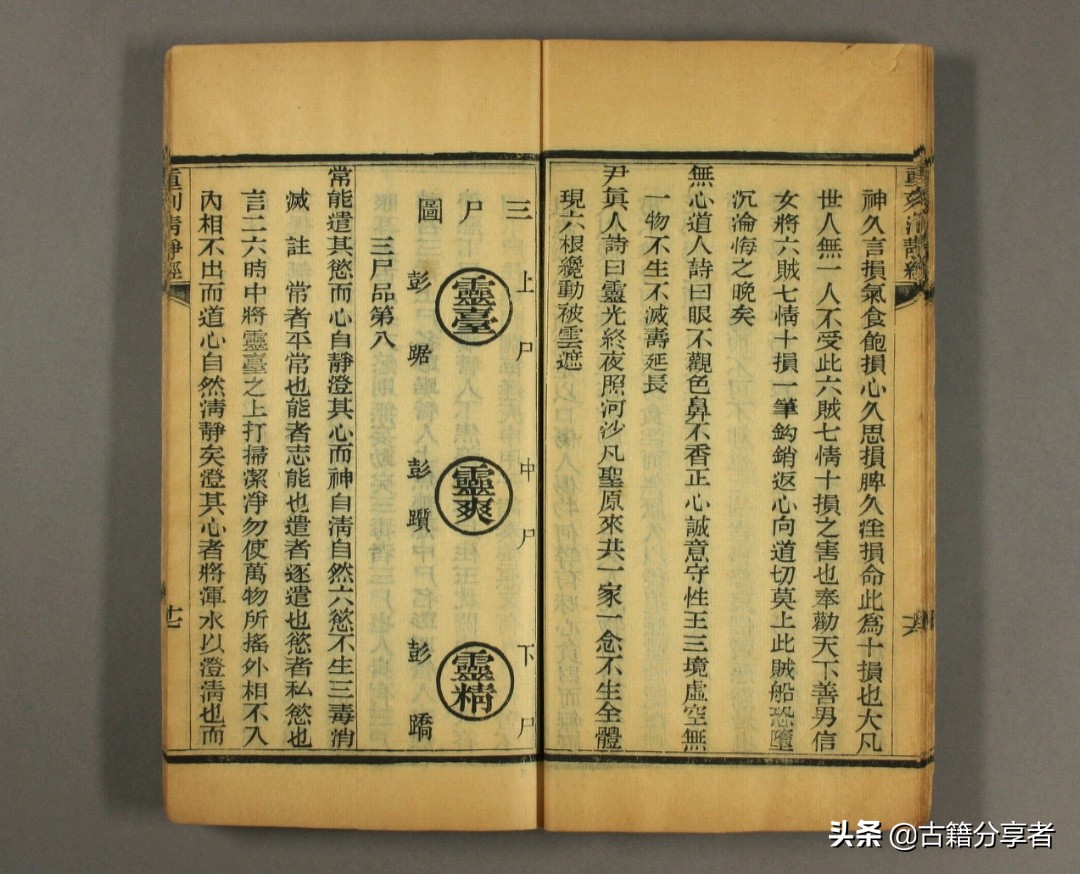 神久言損氣食飽損心久思損脾久淫損命此為十損也大凡
世人無一人不受此六賊七情十損之害也奉勸天下善男信
女將六賊七情十損一筆鈎銷返心向道切莫上此賊船恐墮
沉淪悔之晚矣
無心道人詩曰眼不觀色鼻不香正心誠意守性王三境虛空無
一物不生不滅壽延長
尹眞人詩曰靈光終夜照河沙凡聖原來共一家一念不生全體
現六根纔動被雲遮
三尸圖
上尸 中尸 下尸
靈臺 靈爽 靈精
彭踞 彭躓 彭蹻
三尸品第八
常能遣其慾而心自靜澄其心而神自淸自然六慾不生三毒消
滅 註 常者平常也能者志能也遣者逐遣也慾者私慾也
言二六時中將靈臺之上打掃潔凈勿使萬物所搖外相不入
內相不出而道心自然淸靜矣澄其心者將渾水以澄淸也而
頭条 @古籍分享者